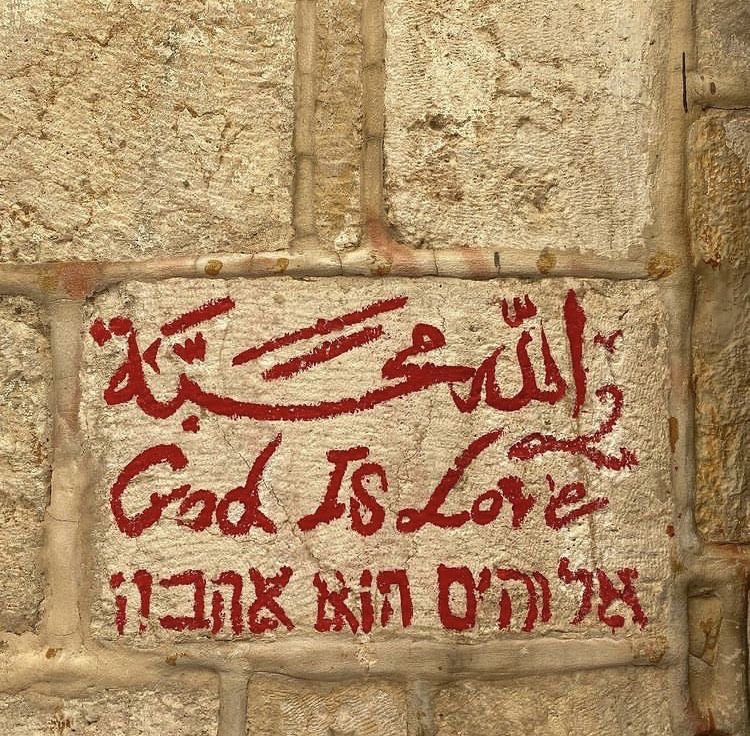 اللّه محَبَّة
God Is Love
אלוהים הוא אהבה